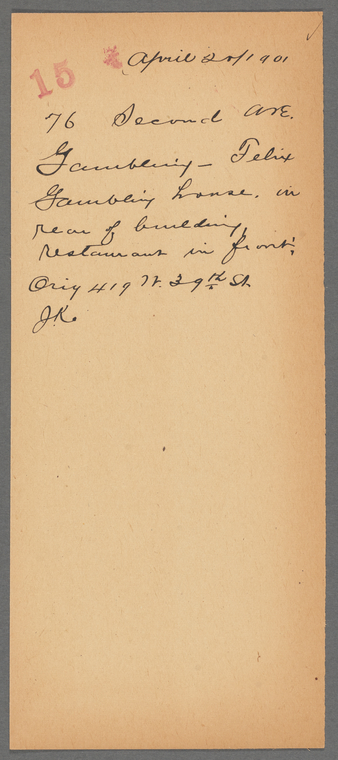 15 April 25/1901
76 Second Ave.
Gambling - Felix
Gambling house. in
rear of building,
restaurant in front.
Orig 419 W. 39th St
J.K.